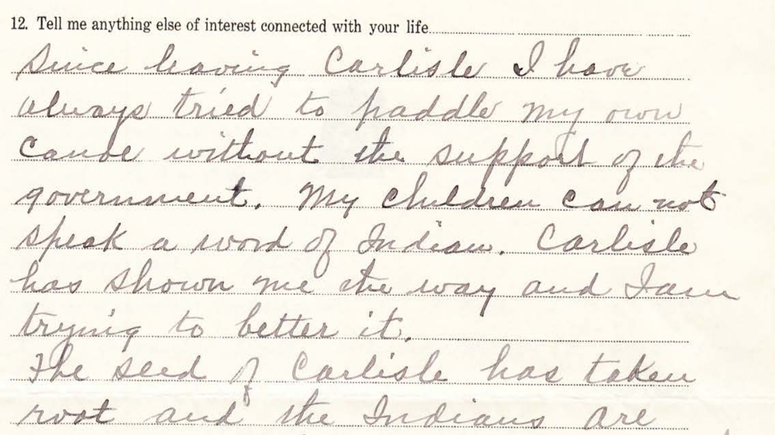 12. Tell me anything else of interest connected with your life
Since leaving Carlisle I have
always tried to paddle my own
canoe without the support of the
government. My children can not
speak a word of Indian. Carlisle
has shown me the way and I am
trying to better it.
The seed of Carlisle has taken
root and the Indians are